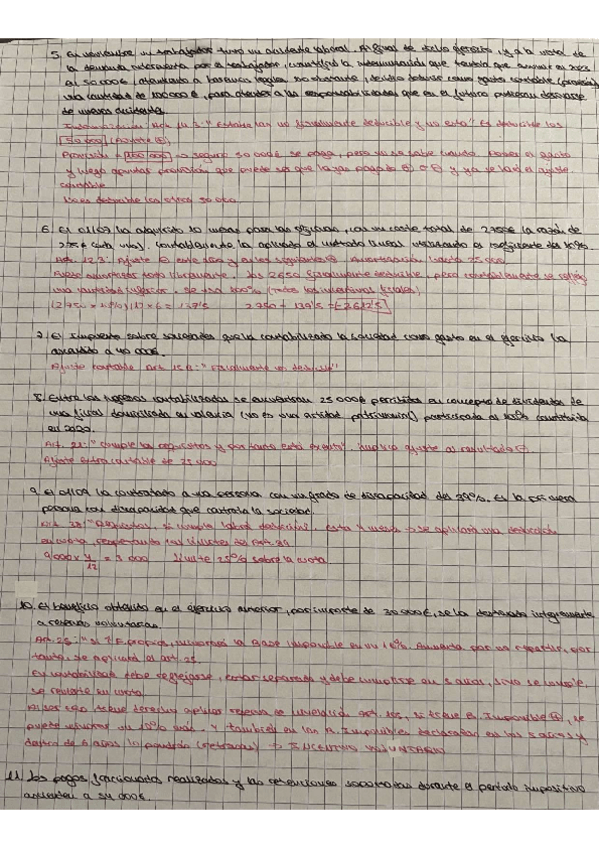 5. En noviembre un trabajador tuvo un accidente laboral. Al final de dicho ejercicio, y a la vista de
la demanda interpuesta por el trabajador, la indemnización que tendría que
50.000€, atendiendo a baremos legales. No obstante, decidió dotar como gasto contable (provisión)
una cantidad de 100.000€, para atender a las responsabilidades que en el futuro pudieran derivarse
de nuevos accidentes.
Art. 14.3: " no fiscalmente deducible y no esta" Es deducible los
50.000 (Ajuste ⊕)
Provisión = 100.000 → seguro 50.000€ se paga, pero no se sabe cuando. Poner el gasto
y luego provisión que puede ser que la haya pagado y ya se hará el ajuste
contable
No es deducible los otros 50.000
6. El 01/07 ha adquirido 10 mesas para las oficinas, con un coste total de 2750€ (a razón de
275€ cada una). Contablemente ha aplicado el método lineal utilizando el coeficiente del 10%.
Art. 12.3. Ajuste ⊖ este año y en los siguientes ⊕. Amortización hasta 25.000
todo libremente, los 2650 fiscalmente deducible, pero contablemente se refleja
una cantidad inferior.
(2750 × 10%)/12 × 6 = 137'5 2750 - 137'5 = (-2612'5)
7. El impuesto sobre sociedades que ha contabilizado la sociedad como gasto en el ejercicio ha
ascendido a 40.000€.
Ajuste contable Art. 15.b: "fiscalmente no deducible"
8. Entre los ingresos contabilizados se encuentran 25.000€ percibidos en concepto de dividendos de
una filial domiciliada en Valencia (no es una entidad patrimonial) participada al 100% constituida
en 2020.
Art. 21: "cumple los requisitos y por tanto está exento". Implica ajuste al resultado ⊖
Ajuste extracontable de 25.000
9. El 01/09 ha contratado a una persona con un grado de discapacidad del 39%. Es la primera
persona con discapacidad que contrata la sociedad.
Art. 38: "Requisitos, si cumple habrá deducción". → se aplicará una deducción
en cuota, respetando los límites del Art. 39
9.000 × 4/12 = 3.000 Límite 25% sobre la cuota
10. El beneficio obtenido en el ejercicio anterior, por importe de 30.000€, se ha destinado íntegramente
a reservas voluntarias.
Art. 25: "Si ↑ F. propios, minoramos la base imponible en un 10%. Aumenta por no repartir, por
tanto, se aplicará el art. 25.
En contabilidad debe reflejarse, estar separada y debe cumplirse en 5 años, si no se cumple,
se revierte en cuota.
tiene derecho aplicar reserva de nivelación art. 105, si tiene B. Imponible ⊕, se
puede minorar un 10% más. Y también en las B. Imponible declaradas en los 5 años y
dentro de 5 años lo pondrán → INCENTIVO VOLUNTARIO
11. Los pagos fraccionados realizados y las retenciones soportadas durante el periodo impositivo
ascienden a 34.000€.